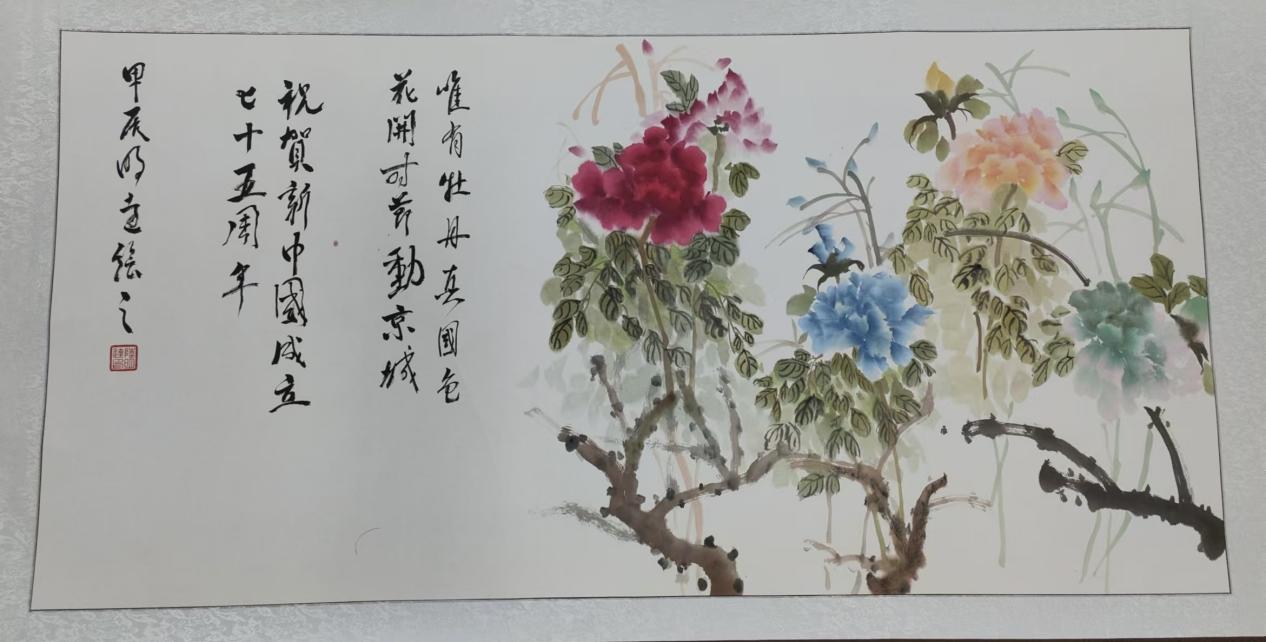 唯有牡丹真國色
花開时節動京城
祝賀新中國成立
七十五周年
甲辰明達繪之